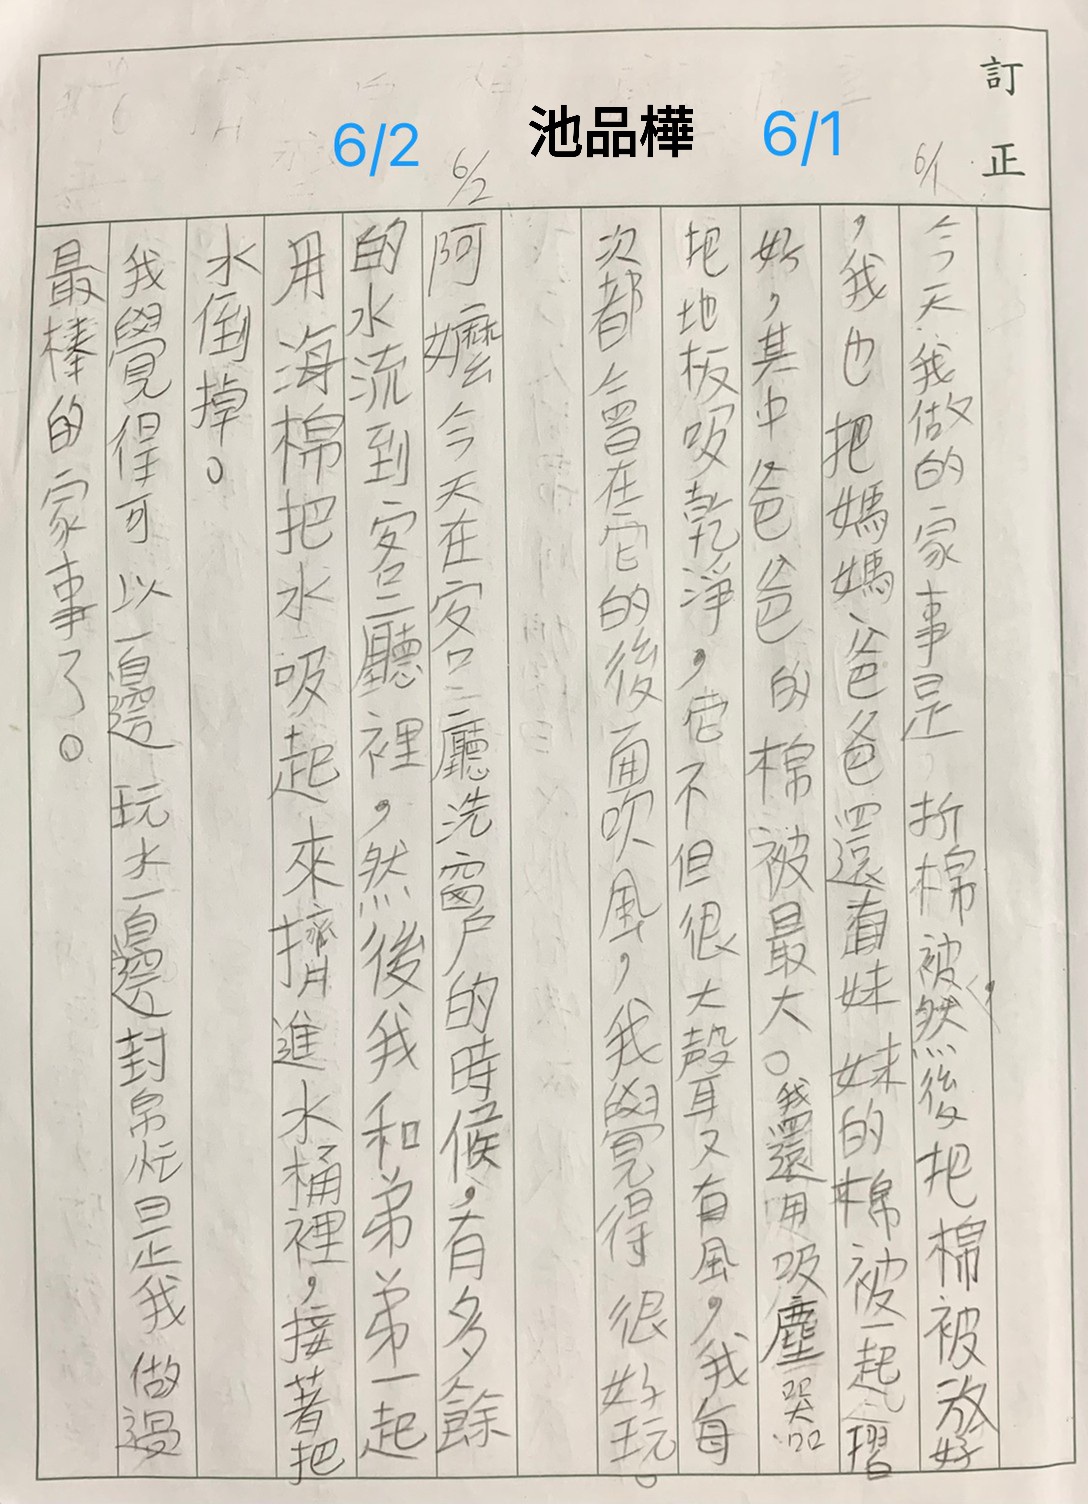 訂正
池品樺
6/1
6/1
今天我做的家事是折棉被,然後把棉被放好
,我也把媽媽、爸爸還有妹妹的棉被一起摺
好,其中爸爸的棉被最大。我還用吸塵器
把地板吸乾淨,它不但很大聲耳又有風,我每
次都會在它的後面吹風,我覺得很好玩。
6/2
6/2
阿嬤今天在客廳洗窗戶的時候,有多餘
的水流到客廳裡,然後我和弟弟一起
用海棉把水吸起來擠進水桶裡,接著把
水倒掉。
我覺得可以一邊玩水一邊幫忙是我做過
最棒的家事了。